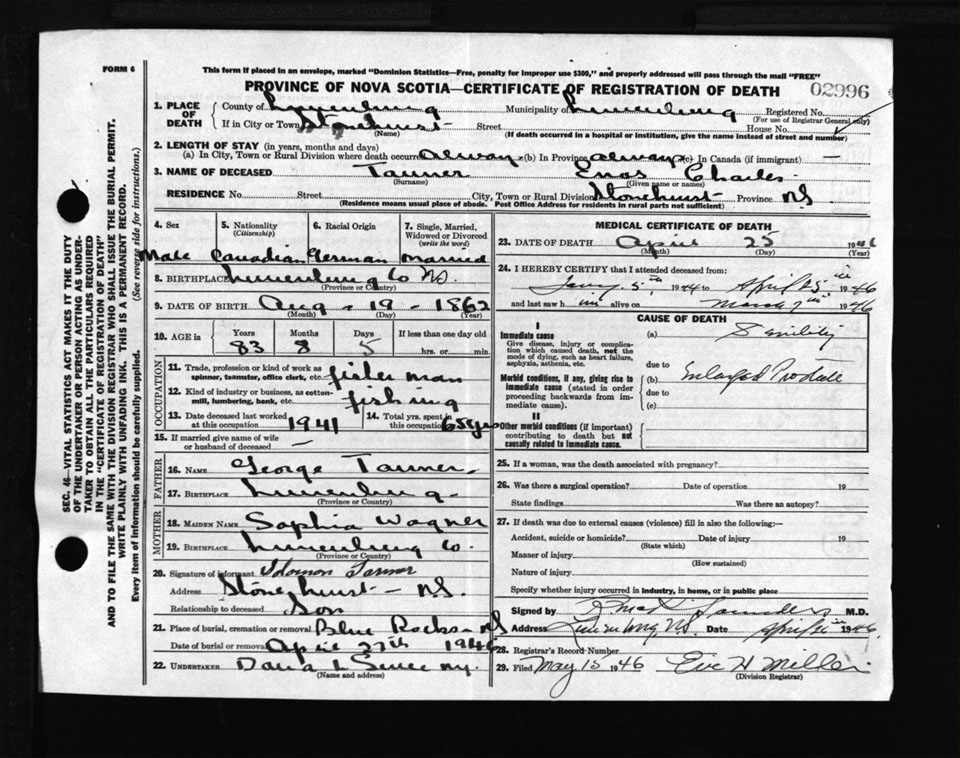 FORM 6
This form if placed in an envelope, marked "Dominion Statistics—Free, penalty for improper use $300," and properly addressed will pass through the mail "FREE"
PROVINCE OF NOVA SCOTIA—CERTIFICATE OF REGISTRATION OF DEATH
02996
1. PLACE OF DEATH
County of Lunenburg Municipality of Lunenburg Registered No.
(For use of Registrar General only)
If in City or Town Stonehurst Street House No.
(Name) (If death occurred in a hospital or institution, give the name instead of street and number)
2. LENGTH OF STAY (in years, months and days)
(a) In City, Town or Rural Division where death occurred always (b) In Province always (c) In Canada (if immigrant) —
3. NAME OF DECEASED Tanner Enos Charles
(Surname) (Given name or names)
RESIDENCE No. Street City, Town or Rural Division Stonehurst Province NS
(Residence means usual place of abode. Post Office Address for residents in rural parts not sufficient)
4. Sex 5. Nationality (Citizenship) 6. Racial Origin 7. Single, Married, Widowed or Divorced (write the word)
Male Canadian German married
8. BIRTHPLACE Lunenburg Co NS.
(Province or Country)
9. DATE OF BIRTH Aug - 19 - 1862
(Month) (Day) (Year)
10. AGE in Years Months Days If less than one day old
83 8 5 hrs. or min.
OCCUPATION
11. Trade, profession or kind of work as spinner, teamster, office clerk, etc. fisherman
12. Kind of industry or business, as cotton-mill, lumbering, bank, etc. fishing
13. Date deceased last worked at this occupation 1941 14. Total yrs. spent in this occupation 65yrs
15. If married give name of wife or husband of deceased —
FATHER
16. NAME George Tanner
17. BIRTHPLACE Lunenburg
(Province or Country)
MOTHER
18. MAIDEN NAME Sophia Wagner
19. BIRTHPLACE Lunenburg Co.
(Province or Country)
20. Signature of informant Solomon Tanner
Address Stonehurst - NS.
Relationship to deceased Son
21. Place of burial, cremation or removal Blue Rocks NS
Date of burial or removal April 27th 1946
22. UNDERTAKER
(Name and address)
MEDICAL CERTIFICATE OF DEATH
23. DATE OF DEATH April 25 1946
(Month) (Day) (Year)
24. I HEREBY CERTIFY that I attended deceased from:
Jany. 5th, 1944 to April 25th 1946
and last saw him alive on March 7th 1946
CAUSE OF DEATH
I
Immediate cause (a) Senility
Give disease, injury or complication which caused death, not the mode of dying, such as heart failure, asphyxia, asthenia, etc.
due to
Morbid conditions, if any, giving rise to immediate cause (stated in order proceeding backwards from immediate cause).
(b) Enlarged Prostate
due to
(c)
II
Other morbid conditions (if important) contributing to death but not causally related to immediate cause.
25. If a woman, was the death associated with pregnancy?
26. Was there a surgical operation? Date of operation 19
State findings Was there an autopsy?
27. If death was due to external causes (violence) fill in also the following:—
Accident, suicide or homicide? Date of injury 19
(State which)
Manner of injury
(How sustained)
Nature of injury
Specify whether injury occurred in industry, in home, or in public place
Signed by Saunders M.D.
Address Lunenburg NS. Date April 1946
28. Registrar's Record Number
29. Filed May 15 1946 H Miller
(Division Registrar)
SEC. 46—VITAL STATISTICS ACT MAKES IT THE DUTY OF THE UNDERTAKER OR PERSON ACTING AS UNDERTAKER TO OBTAIN ALL THE PARTICULARS REQUIRED IN THE "CERTIFICATE OF REGISTRATION OF DEATH"
AND TO FILE THE SAME WITH THE DIVISION REGISTRAR WHO SHALL ISSUE THE BURIAL PERMIT.
WRITE PLAINLY WITH UNFADING INK. THIS IS A PERMANENT RECORD.
Every item of information should be carefully supplied. (See reverse side for instructions.)